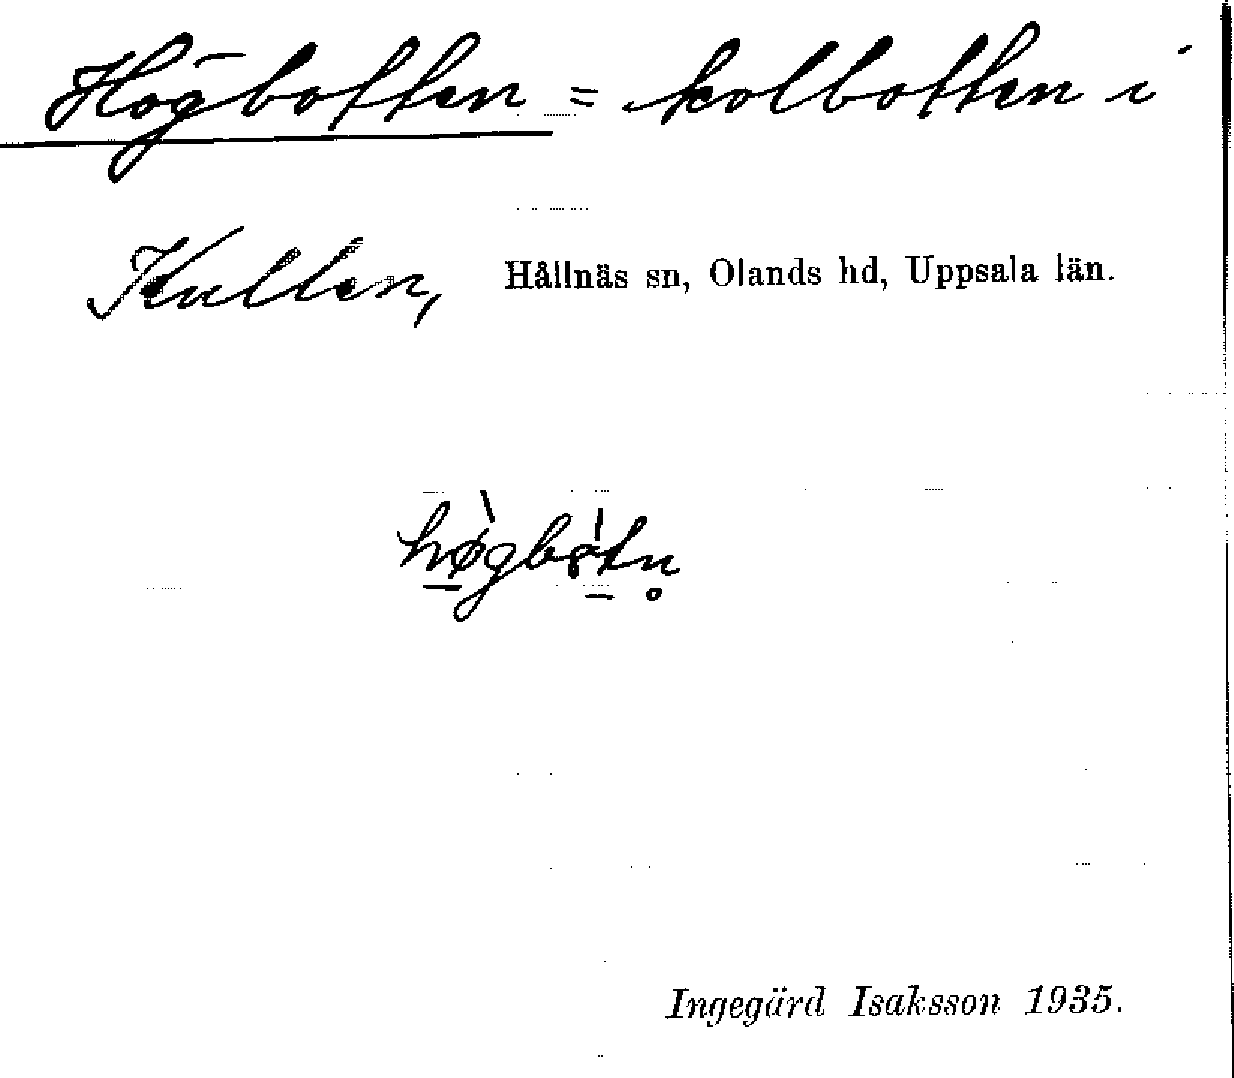 Högbotten = kolbotten i
Kullen, Hållnäs sn, Olands hd, Uppsala län.
høgbòtn̥
Ingegärd Isaksson 1935.